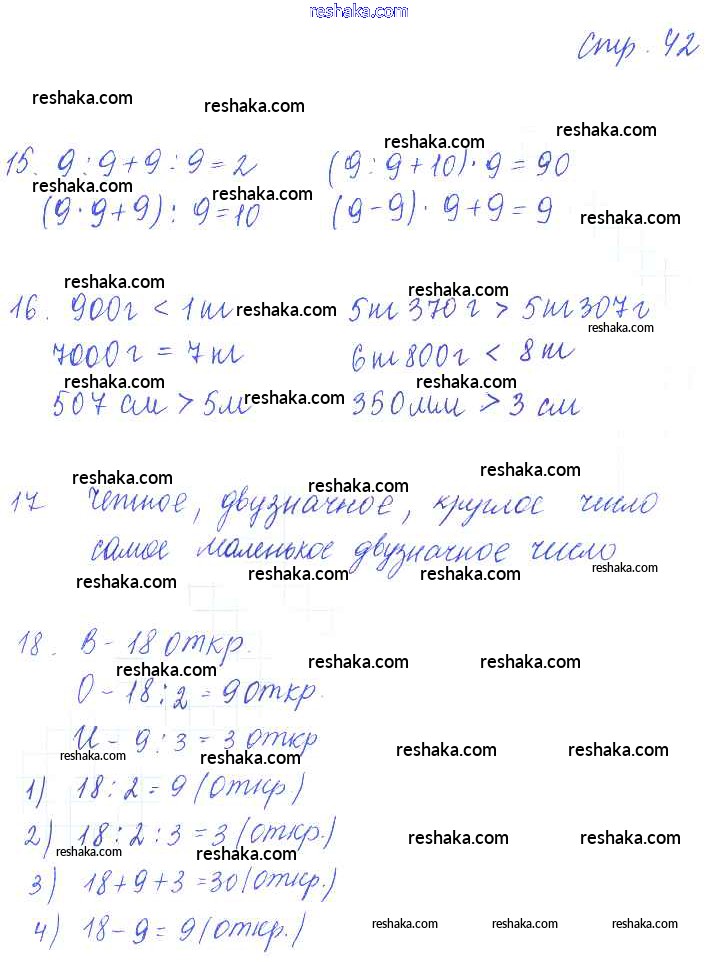 reshaka.com
стр. 42
reshaka.com reshaka.com
reshaka.com reshaka.com
15. 9 : 9 + 9 : 9 = 2 (9 : 9 + 10) · 9 = 90
reshaka.com reshaka.com reshaka.com
(9 · 9 + 9) : 9 = 10 (9 - 9) · 9 + 9 = 9
reshaka.com reshaka.com
16. 900г < 1кг 5кг 370г > 5кг 307г
reshaka.com reshaka.com
7000г = 7кг 6кг 800г < 8кг
reshaka.com reshaka.com reshaka.com
507 см > 5м 350мм > 3 см
reshaka.com
reshaka.com reshaka.com reshaka.com
17 Четное, двузначное, круглое число
самое маленькое двузначное число
reshaka.com reshaka.com reshaka.com reshaka.com
18. В - 18 откр.
reshaka.com reshaka.com reshaka.com
О - 18 : 2 = 9 откр.
И - 9 : 3 = 3 откр
reshaka.com reshaka.com reshaka.com reshaka.com
1) 18 : 2 = 9 (откр.)
2) 18 : 2 : 3 = 3 (откр.)
reshaka.com reshaka.com reshaka.com reshaka.com
3) 18 + 9 + 3 = 30 (откр.)
4) 18 - 9 = 9 (откр.)
reshaka.com reshaka.com reshaka.com